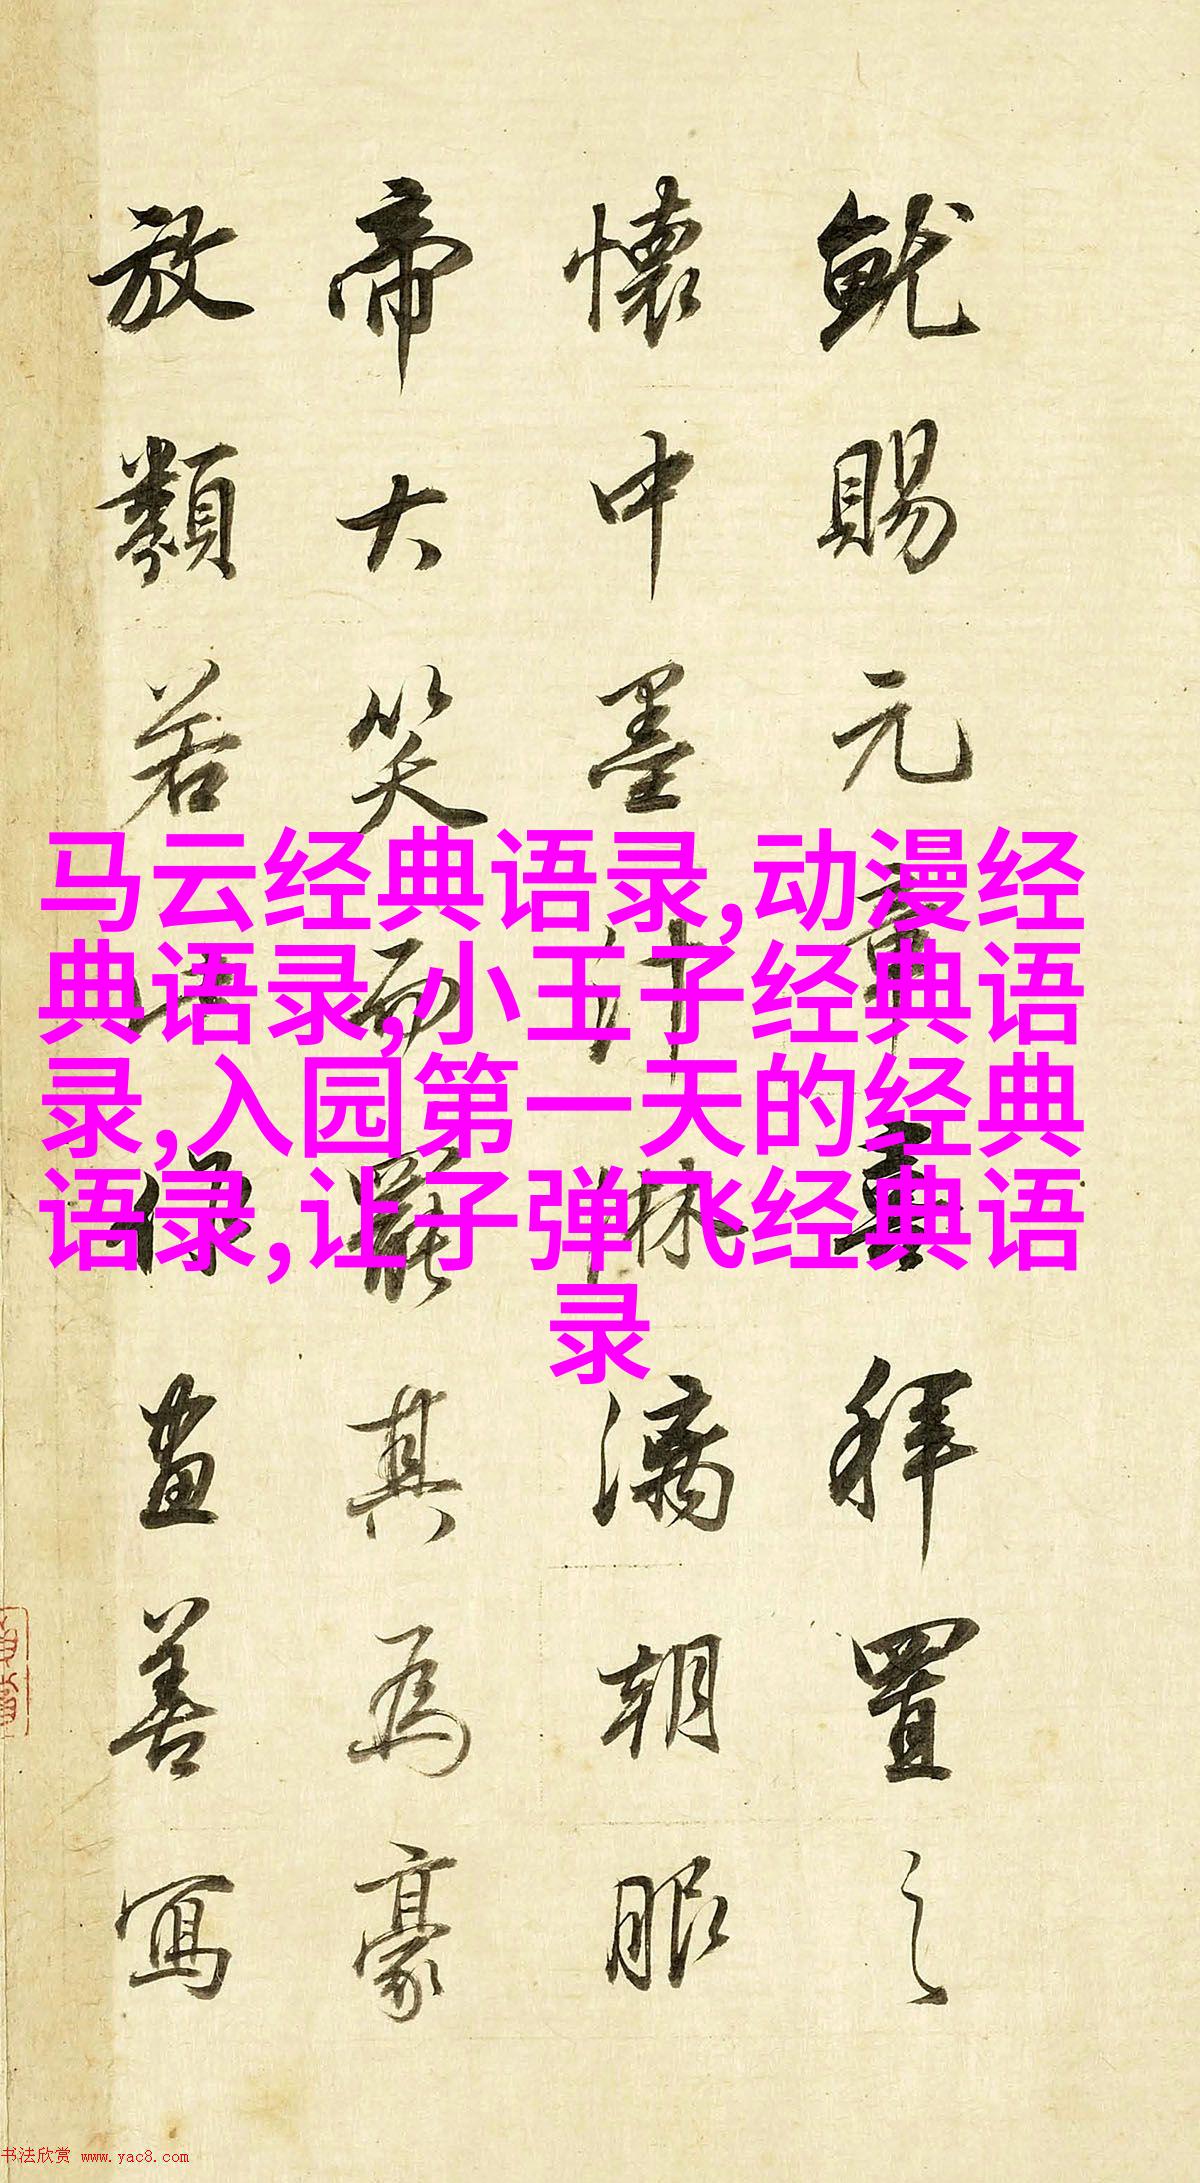 就賜元章拜置之
懷中墨汁淋漓朝服
帝大笑而罷其為豪
放類若此畫善寫
马云经典语录,动漫经
典语录,小王子经典语
录,入园第一天的经典
语录,让子弹飞经典语
录
书法欣赏 www.yac8.com